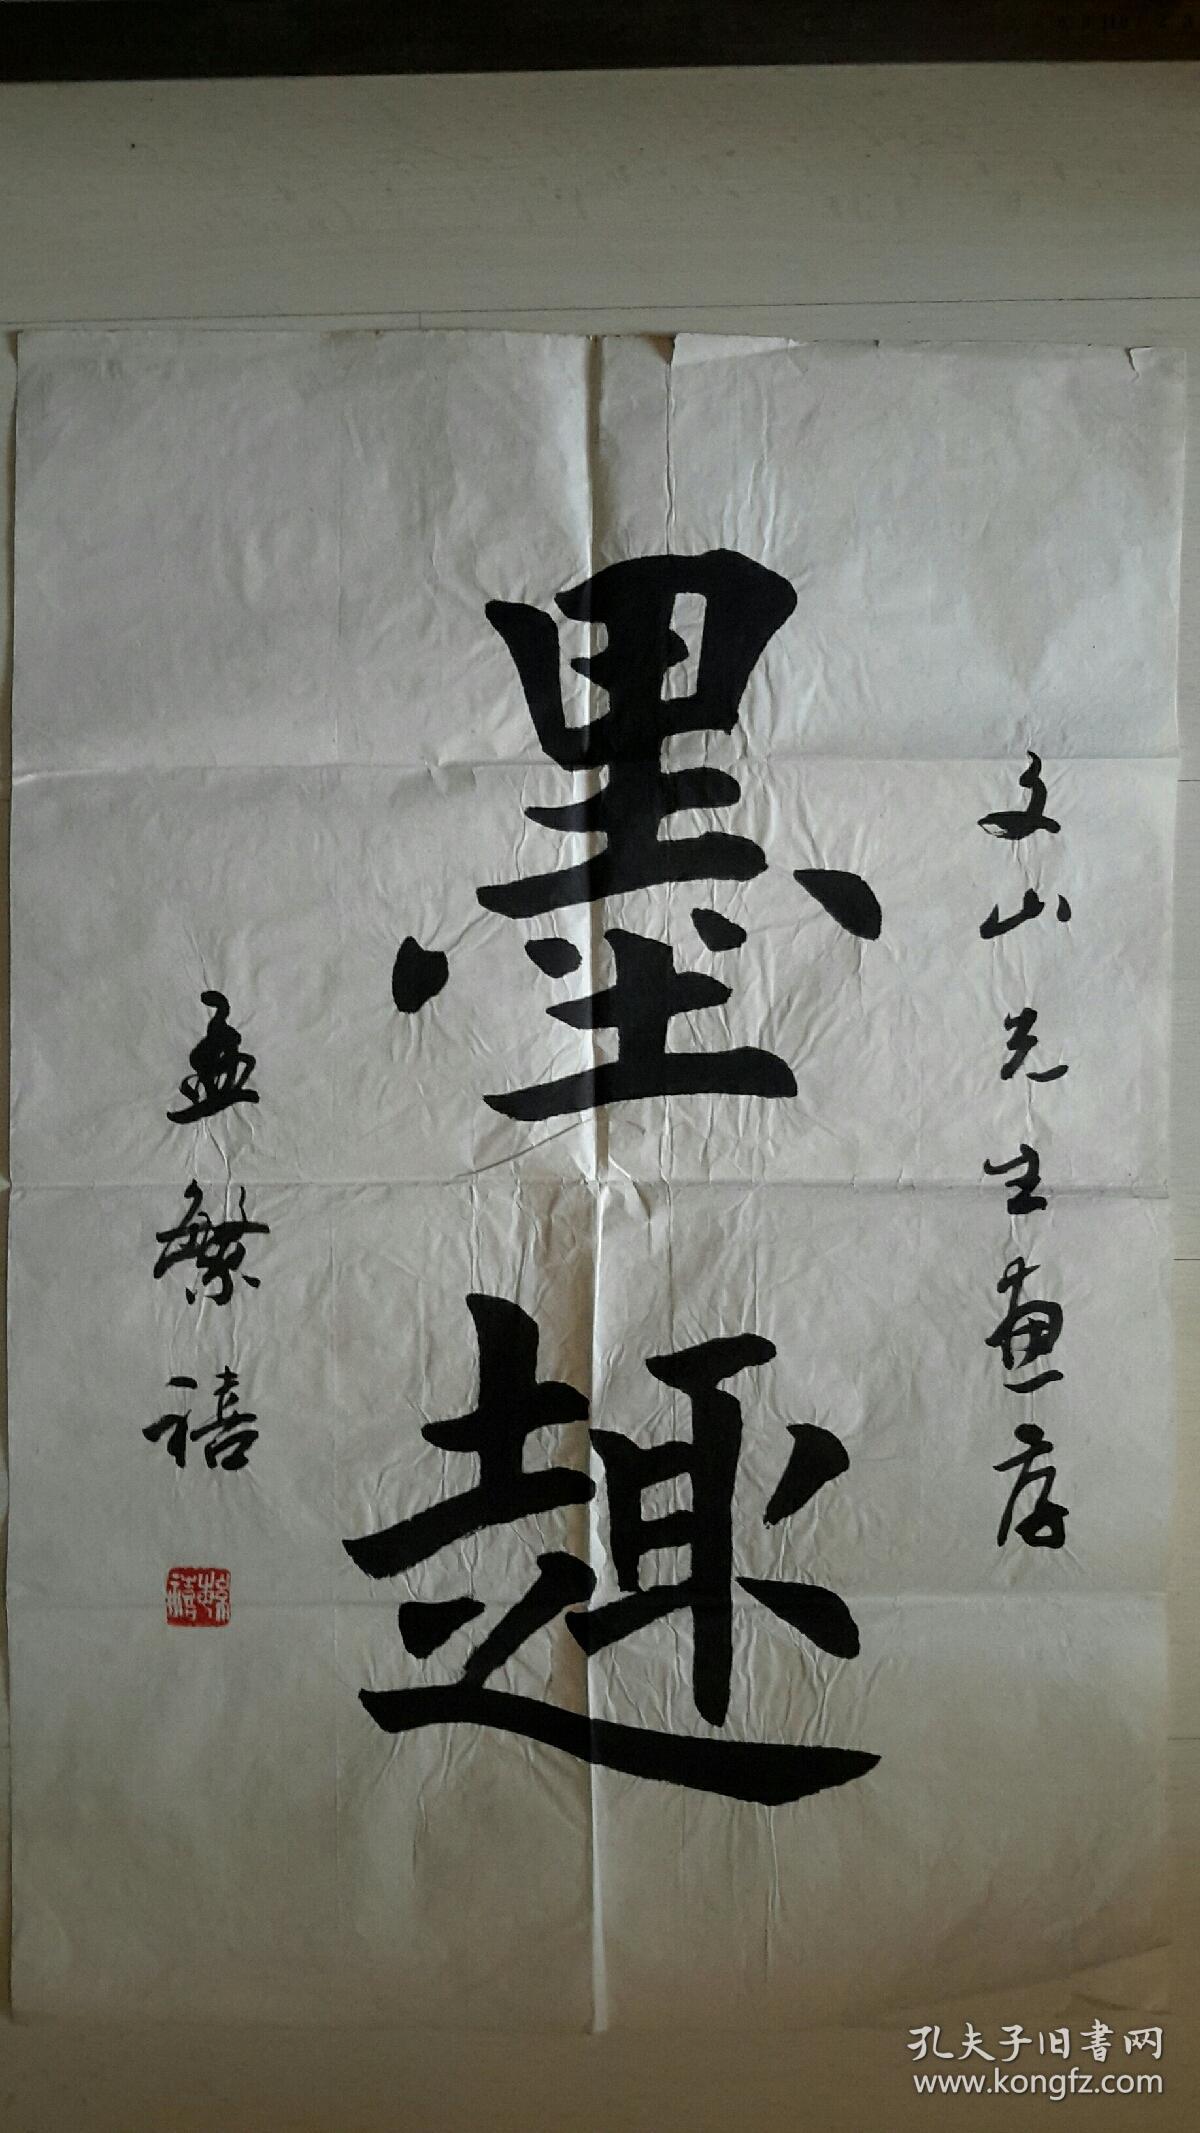 文山先生惠存
墨趣
孟繁禧
繁禧
孔夫子旧書网
www.kongfz.com